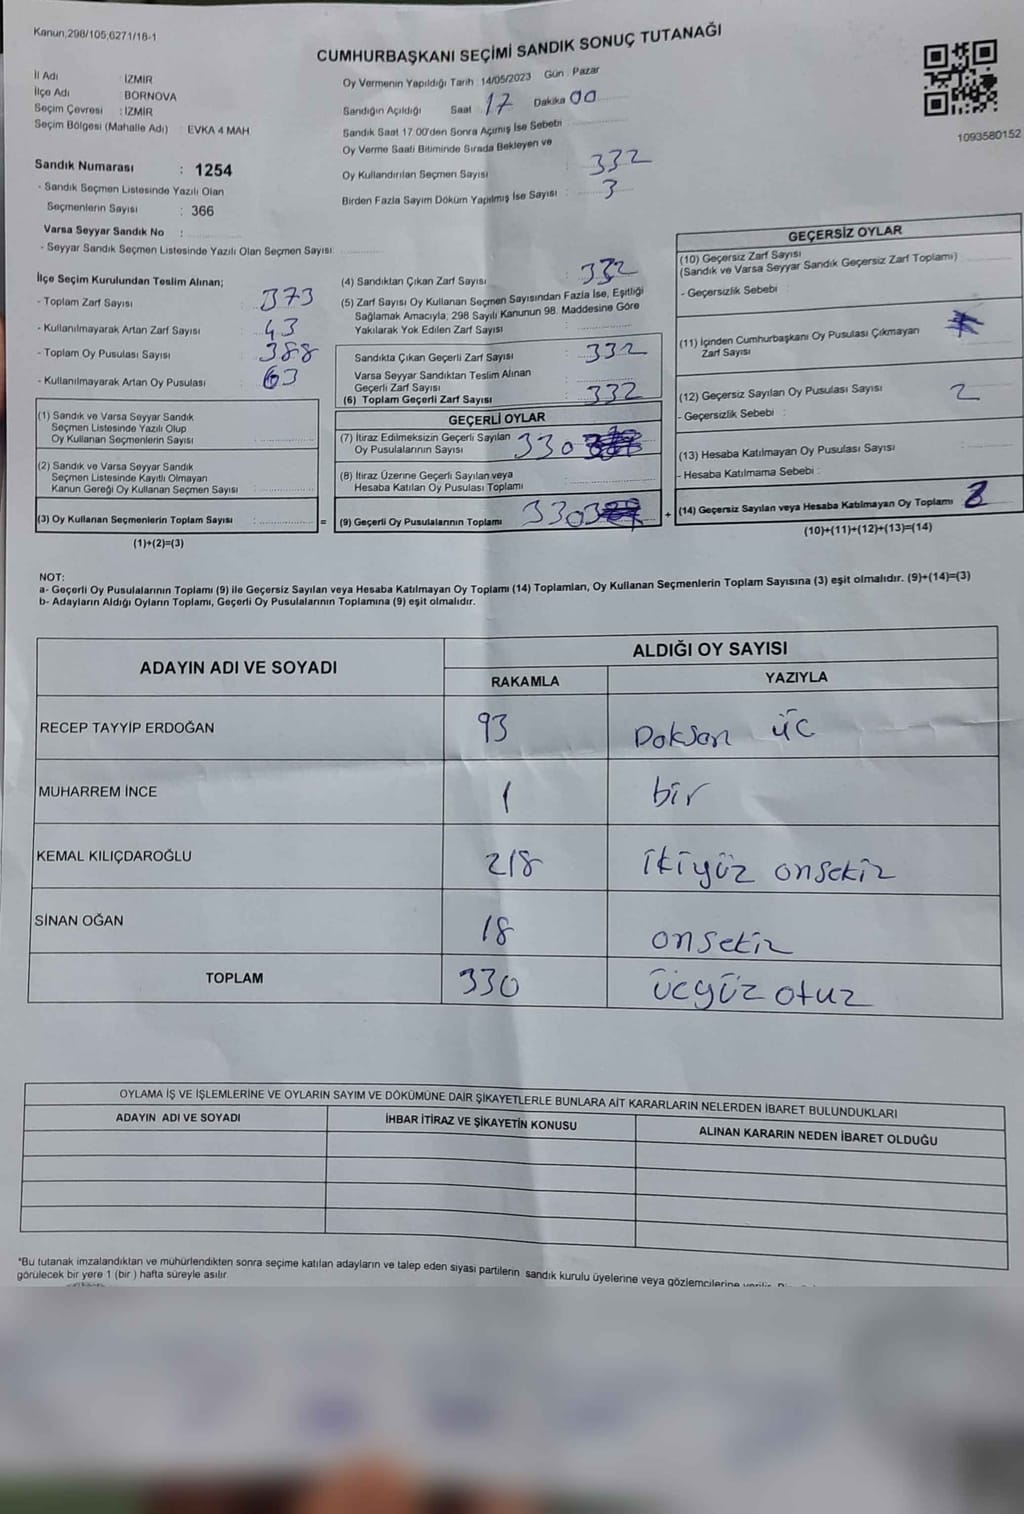 Kanun,298/105,6271/18-1
CUMHURBAŞKANI SEÇİMİ SANDIK SONUÇ TUTANAĞI
İl Adı : İZMİR
İlçe Adı : BORNOVA
Seçim Çevresi : İZMİR
Seçim Bölgesi (Mahalle Adı) : EVKA 4 MAH
Sandık Numarası : 1254
- Sandık Seçmen Listesinde Yazılı Olan
Seçmenlerin Sayısı : 366
Varsa Seyyar Sandık No :
- Seyyar Sandık Seçmen Listesinde Yazılı Olan Seçmen Sayısı:
Oy Vermenin Yapıldığı Tarih : 14/05/2023 Gün : Pazar
Sandığın Açıldığı Saat 17 Dakika 00
Sandık Saat 17:00'den Sonra Açımış İse Sebebi
Oy Verme Saati Bitiminde Sırada Bekleyen ve
Oy Kullandırılan Seçmen Sayısı : 332
Birden Fazla Sayım Döküm Yapılmış İse Sayısı : 3
1093580152
İlçe Seçim Kurulundan Teslim Alınan;
- Toplam Zarf Sayısı 373
- Kullanılmayarak Artan Zarf Sayısı : 43
- Toplam Oy Pusulası Sayısı 388
- Kullanılmayarak Artan Oy Pusulası : 63
(1) Sandık ve Varsa Seyyar Sandık
Seçmen Listesinde Yazılı Olup
Oy Kullanan Seçmenlerin Sayısı :
(2) Sandık ve Varsa Seyyar Sandık
Seçmen Listesinde Kayıtlı Olmayan
Kanun Gereği Oy Kullanan Seçmen Sayısı :
(3) Oy Kullanan Seçmenlerin Toplam Sayısı : =
(1)+(2)=(3)
(4) Sandıktan Çıkan Zarf Sayısı : 332
(5) Zarf Sayısı Oy Kullanan Seçmen Sayısından Fazla İse, Eşitliği
Sağlamak Amacıyla, 298 Sayılı Kanunun 98. Maddesine Göre
Yakılarak Yok Edilen Zarf Sayısı :
Sandıkta Çıkan Geçerli Zarf Sayısı : 332
Varsa Seyyar Sandıktan Teslim Alınan
Geçerli Zarf Sayısı :
(6) Toplam Geçerli Zarf Sayısı : 332
GEÇERLİ OYLAR
(7) İtiraz Edilmeksizin Geçerli Sayılan
Oy Pusulalarının Sayısı 330
(8) İtiraz Üzerine Geçerli Sayılan veya
Hesaba Katılan Oy Pusulası Toplamı :
(9) Geçerli Oy Pusulalarının Toplamı 330 +
GEÇERSİZ OYLAR
(10) Geçersiz Zarf Sayısı
(Sandık ve Varsa Seyyar Sandık Geçersiz Zarf Toplamı)
- Geçersizlik Sebebi :
(11) İçinden Cumhurbaşkanı Oy Pusulası Çıkmayan
Zarf Sayısı
(12) Geçersiz Sayılan Oy Pusulası Sayısı : 2
- Geçersizlik Sebebi :
(13) Hesaba Katılmayan Oy Pusulası Sayısı :
- Hesaba Katılmama Sebebi :
(14) Geçersiz Sayılan veya Hesaba Katılmayan Oy Toplamı
(10)+(11)+(12)+(13)=(14)
NOT:
a- Geçerli Oy Pusulalarının Toplamı (9) ile Geçersiz Sayılan veya Hesaba Katılmayan Oy Toplamı (14) Toplamları, Oy Kullanan Seçmenlerin Toplam Sayısına (3) eşit olmalıdır. (9)+(14)=(3)
b- Adayların Aldığı Oyların Toplamı, Geçerli Oy Pusulalarının Toplamına (9) eşit olmalıdır.
ADAYIN ADI VE SOYADI ALDIĞI OY SAYISI
RAKAMLA YAZIYLA
RECEP TAYYİP ERDOĞAN 93 Doksan üç
MUHARREM İNCE 1 bir
KEMAL KILIÇDAROĞLU 218 ikiyüz onsekiz
SİNAN OĞAN 18 onsekiz
TOPLAM 330 üçyüz otuz
OYLAMA İŞ VE İŞLEMLERİNE VE OYLARIN SAYIM VE DÖKÜMÜNE DAİR ŞİKAYETLERLE BUNLARA AİT KARARLARIN NELERDEN İBARET BULUNDUKLARI
ADAYIN ADI VE SOYADI İHBAR İTİRAZ VE ŞİKAYETİN KONUSU ALINAN KARARIN NEDEN İBARET OLDUĞU
*Bu tutanak imzalandıktan ve mühürlendikten sonra seçime katılan adayların ve talep eden siyasi partilerin sandık kurulu üyelerine veya gözlemcilerine verilir.
görülecek bir yere 1 (bir ) hafta süreyle asılır